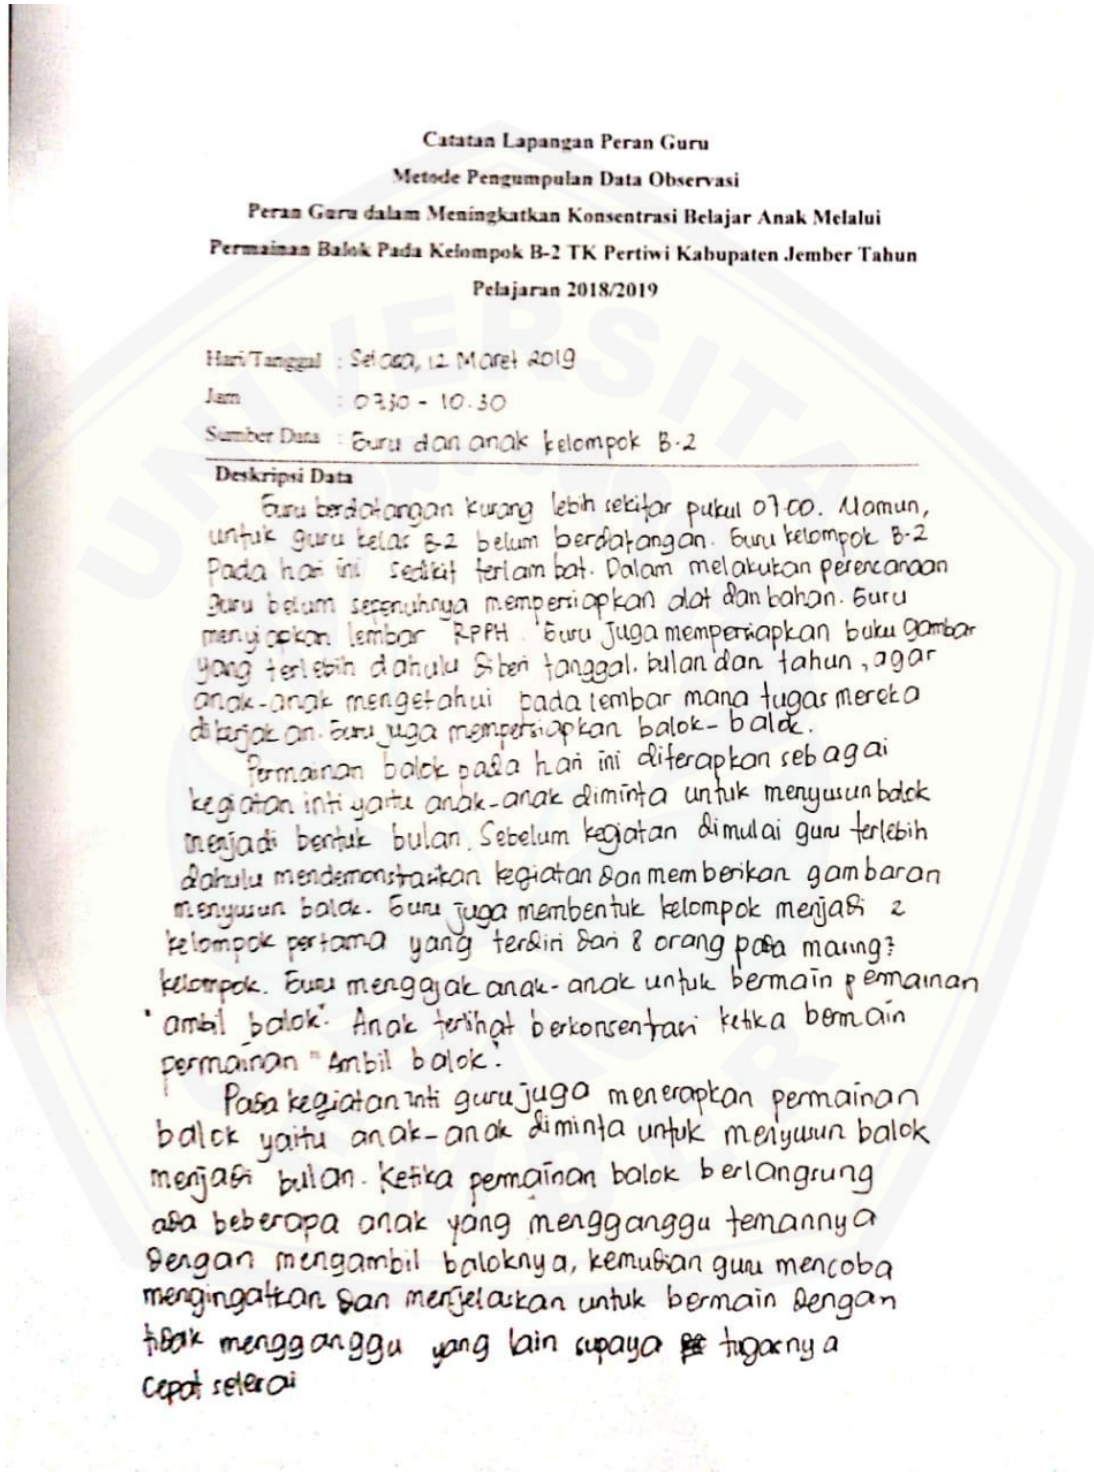 Catatan Lapangan Peran Guru
Metode Pengumpulan Data Observasi
Peran Guru dalam Meningkatkan Konsentrasi Belajar Anak Melalui
Permainan Balok Pada Kelompok B-2 TK Pertiwi Kabupaten Jember Tahun
Pelajaran 2018/2019
Hari/Tanggal : Selasa, 12 Maret 2019
Jam : 07.30 - 10.30
Sumber Data : Guru dan anak kelompok B-2
Deskripsi Data
Guru berdatangan kurang lebih sekitar pukul 07.00. Namun,
untuk guru kelas B-2 belum berdatangan. Guru kelompok B-2
Pada hari ini sedikit terlambat. Dalam melakukan perencanaan
guru belum sepenuhnya mempersiapkan alat dan bahan. Guru
menyiapkan lembar RPPH. Guru juga mempersiapkan buku gambar
yang terlebih dahulu diberi tanggal, bulan dan tahun, agar
anak-anak mengetahui pada lembar mana tugas mereka
dikerjakan. Guru juga mempersiapkan balok-balok.
Permainan balok pada hari ini diterapkan sebagai
kegiatan inti yaitu anak-anak diminta untuk menyusun balok
menjadi bentuk bulan. Sebelum kegiatan dimulai guru terlebih
dahulu mendemonstrasikan kegiatan dan memberikan gambaran
menyusun balok. Guru juga membentuk kelompok menjadi 2
kelompok pertama yang terdiri dari 8 orang pada masing2
kelompok. Guru mengajak anak-anak untuk bermain permainan
"ambil balok". Anak terlihat berkonsentrasi ketika bermain
permainan "Ambil balok".
Pada kegiatan inti guru juga menerapkan permainan
balok yaitu anak-anak diminta untuk menyusun balok
menjadi bulan. Ketika permainan balok berlangsung
ada beberapa anak yang mengganggu temannya
dengan mengambil baloknya, kemudian guru mencoba
mengingatkan dan menjelaskan untuk bermain dengan
tidak mengganggu yang lain supaya tugasnya
cepat selesai
UNIVERSITAS
JEMBER